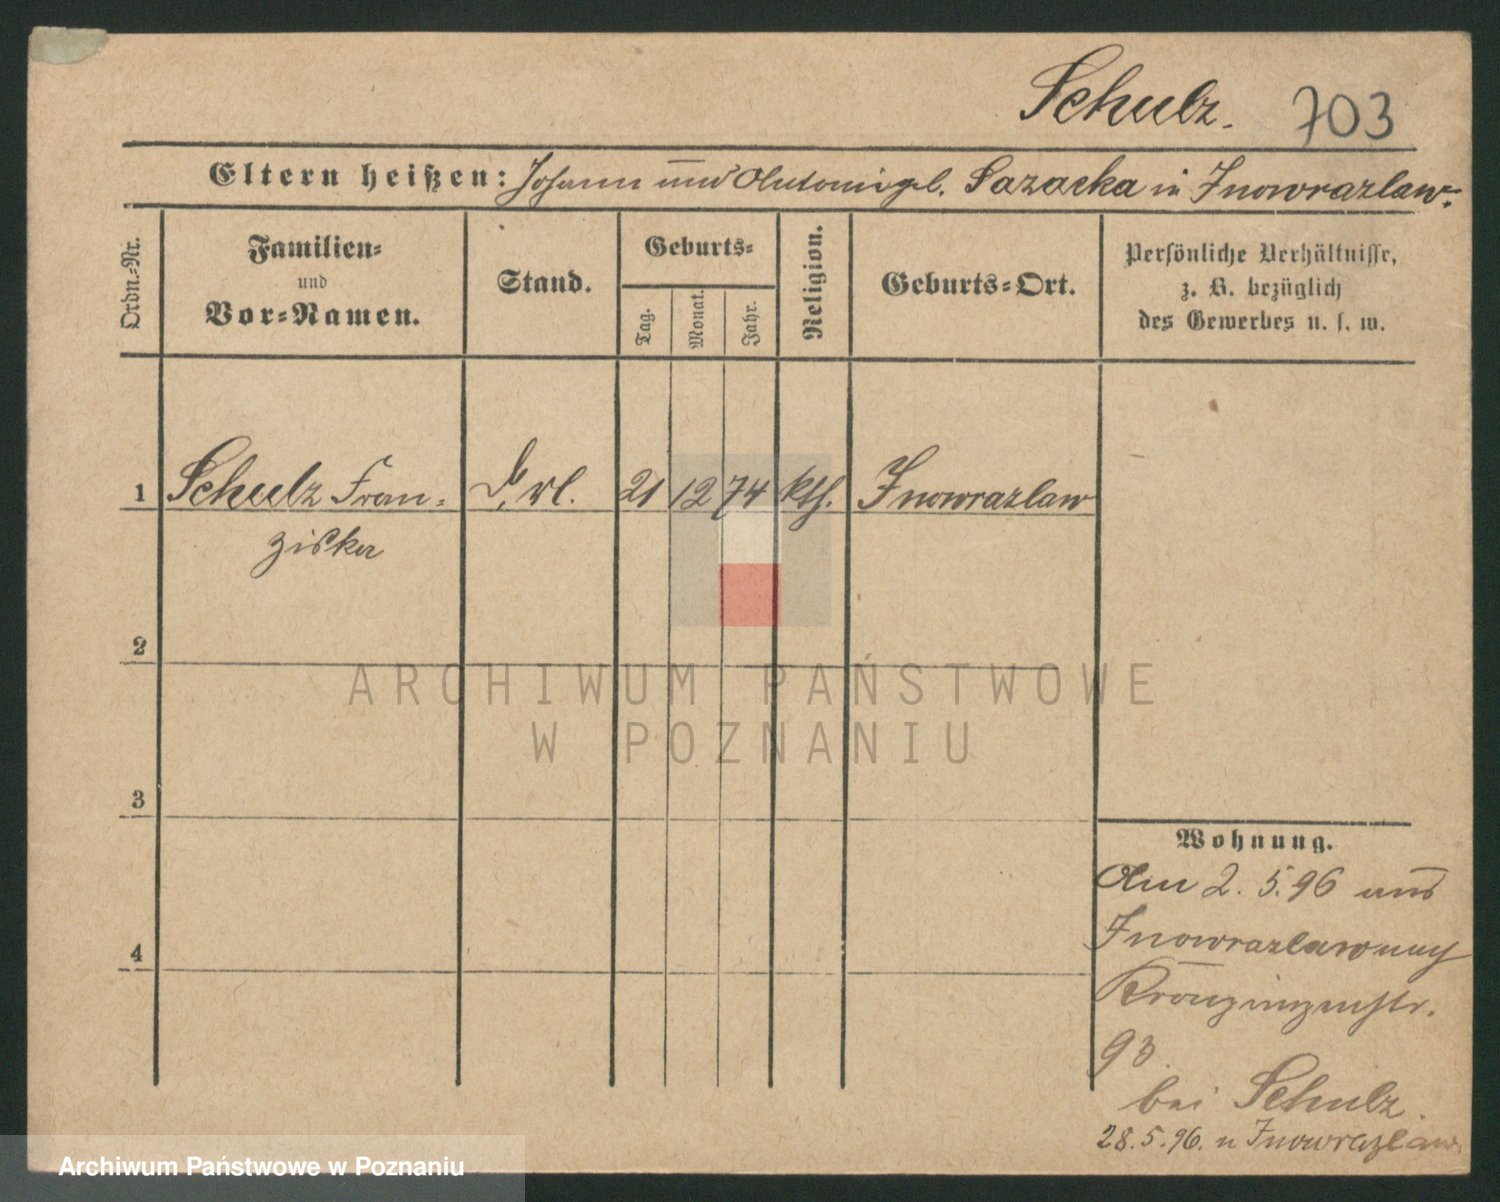 Schulz. 703
Eltern heißen: Johann und Antonie geb. Sazacka in Inowrazlaw.
Ordn.-Nr.
Familien-
und
Vor-Namen.
Stand.
Geburts-
Tag.
Monat.
Jahr.
Religion.
Geburts-Ort.
Persönliche Verhältnisse,
z. B. bezüglich
des Gewerbes u. s. w.
1 Schulz Fran- 21 12 74 kth. Inowrazlaw
ziska
2
3
4
Wohnung.
Am 2. 5. 96 aus
Inowrazlaw nach
Kronprinzenstr.
93.
bei Schulz.
28. 5. 96. n Inowrazlaw.
ARCHIWUM PAŃSTWOWE
W POZNANIU
Archiwum Państwowe w Poznaniu